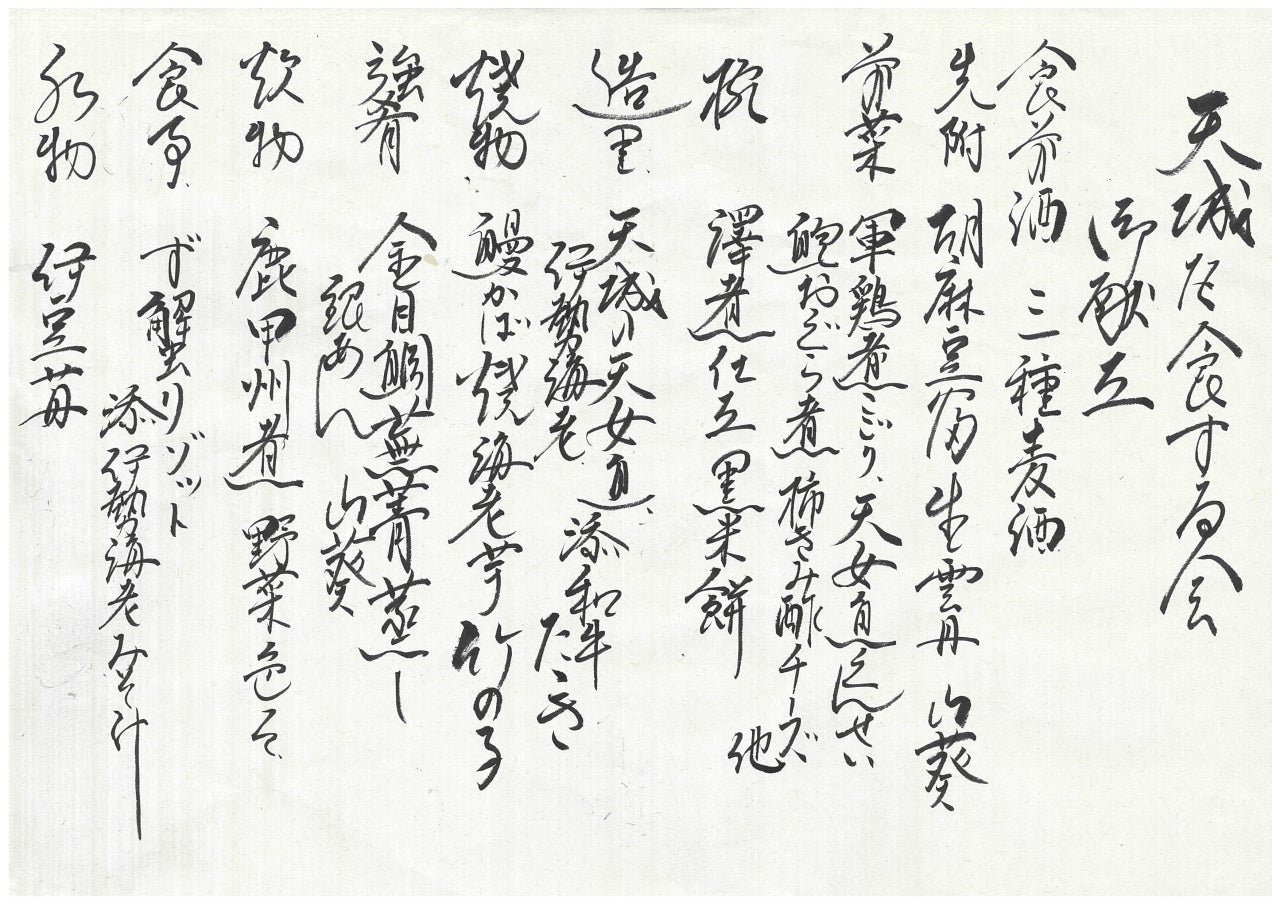 天城を食する会
御献立
食前酒 三種麦酒
先附 胡麻豆腐 生雲丹 山葵
前菜 軍鶏煮こごり、天女魚くんせい
鮑おぐら煮 柿きみ酢チーズ 他
椀 澤煮仕立 黒米餅
造里 天城の天女魚、添和牛たたき
伊勢海老
焼物 鰻かば焼 海老芋 竹の子
強肴 金目鯛蕪菁蒸し
銀あん 山葵
炊物 鹿甲州煮 野菜色々
食事 ず蟹リゾット
添伊勢海老みそ汁
水物 伊豆苺